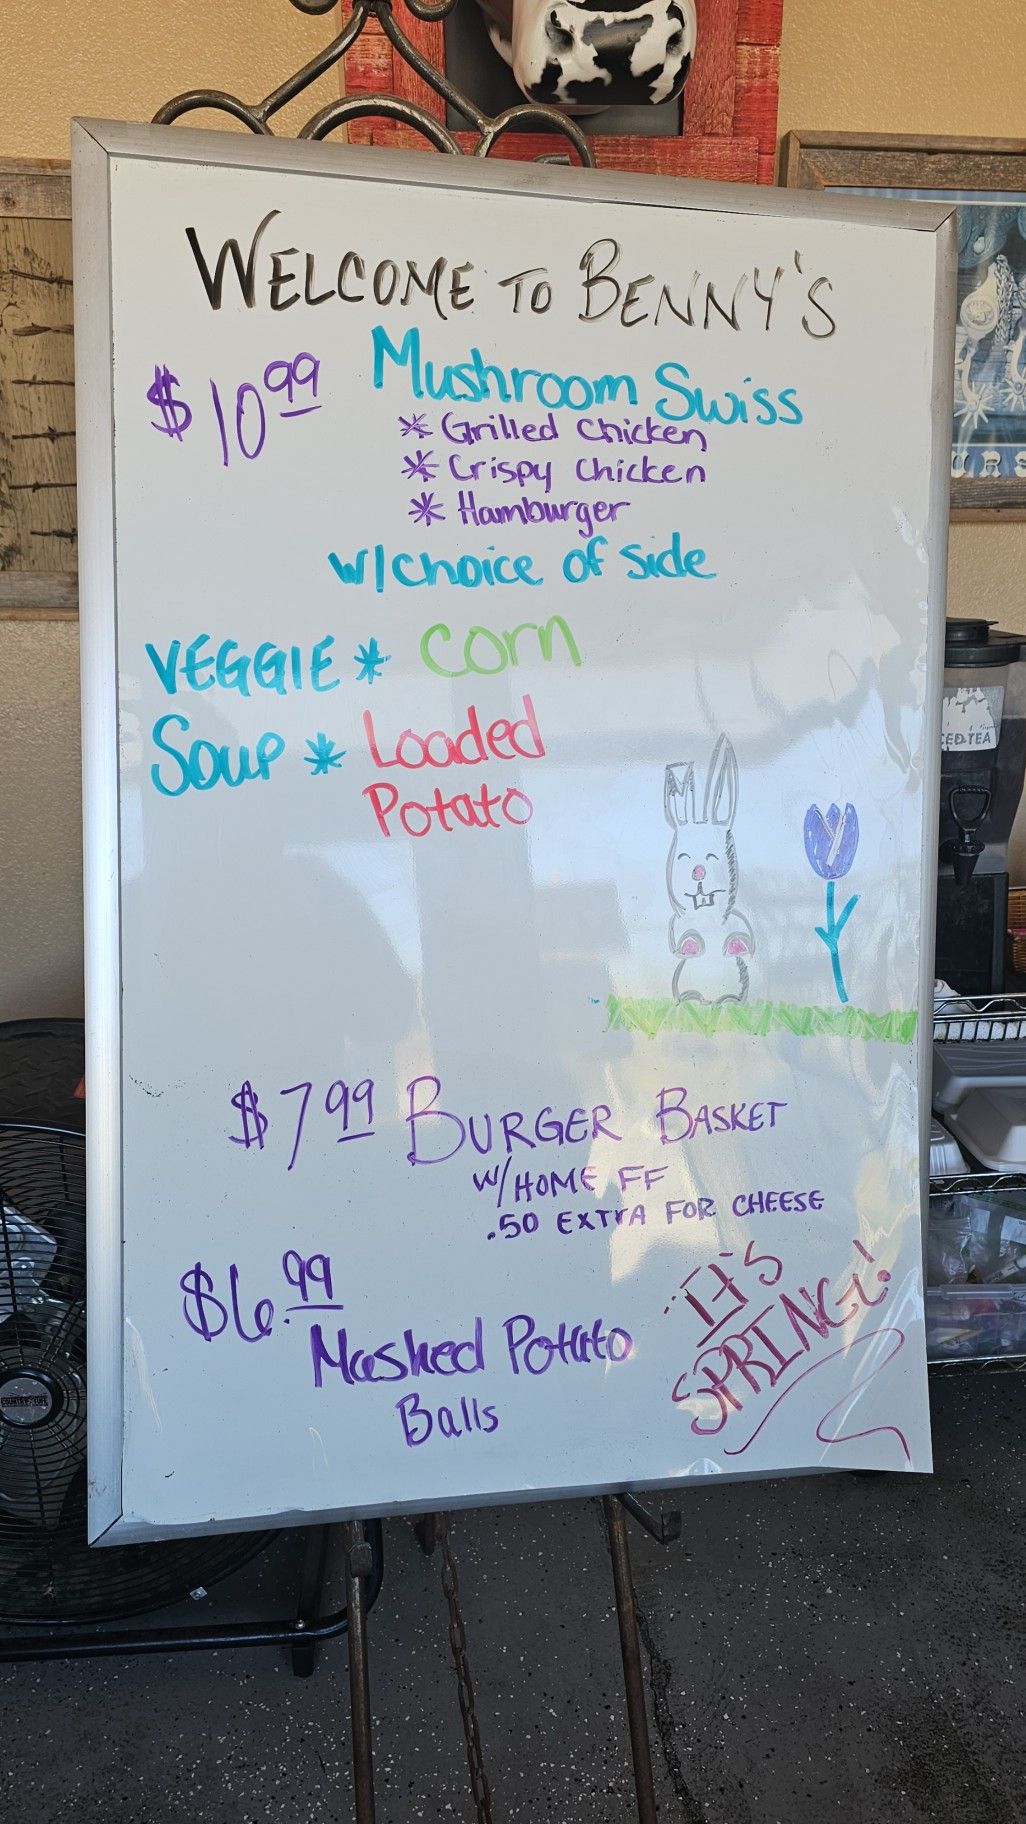 WELCOME TO BENNY'S
$10.99 Mushroom Swiss
* Grilled Chicken
* Crispy Chicken
* Hamburger
w/choice of side
VEGGIE * corn
Soup * Loaded
Potato
$7.99 BURGER BASKET
W/HOME FF
.50 EXTRA FOR CHEESE
$6.99
Mashed Potato
Balls
IT'S
SPRING!
ICED TEA